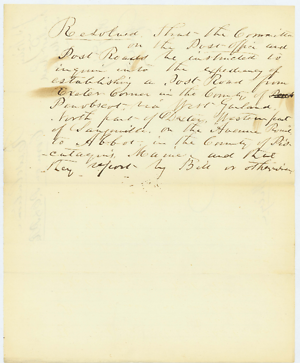 Resolved, that the Committee
on the Post Office and
Post Roads be instructed to
inquire into the expediency of
establishing a Post Road from
Exeter Corner in the County of
Penobscot, via West Garland
North part of Dexter, Western part
of Sangerville, on the Avenue Road
to Abbot, in the County of Pis-
cataquis, Maine, and that
they report by Bill or otherwise